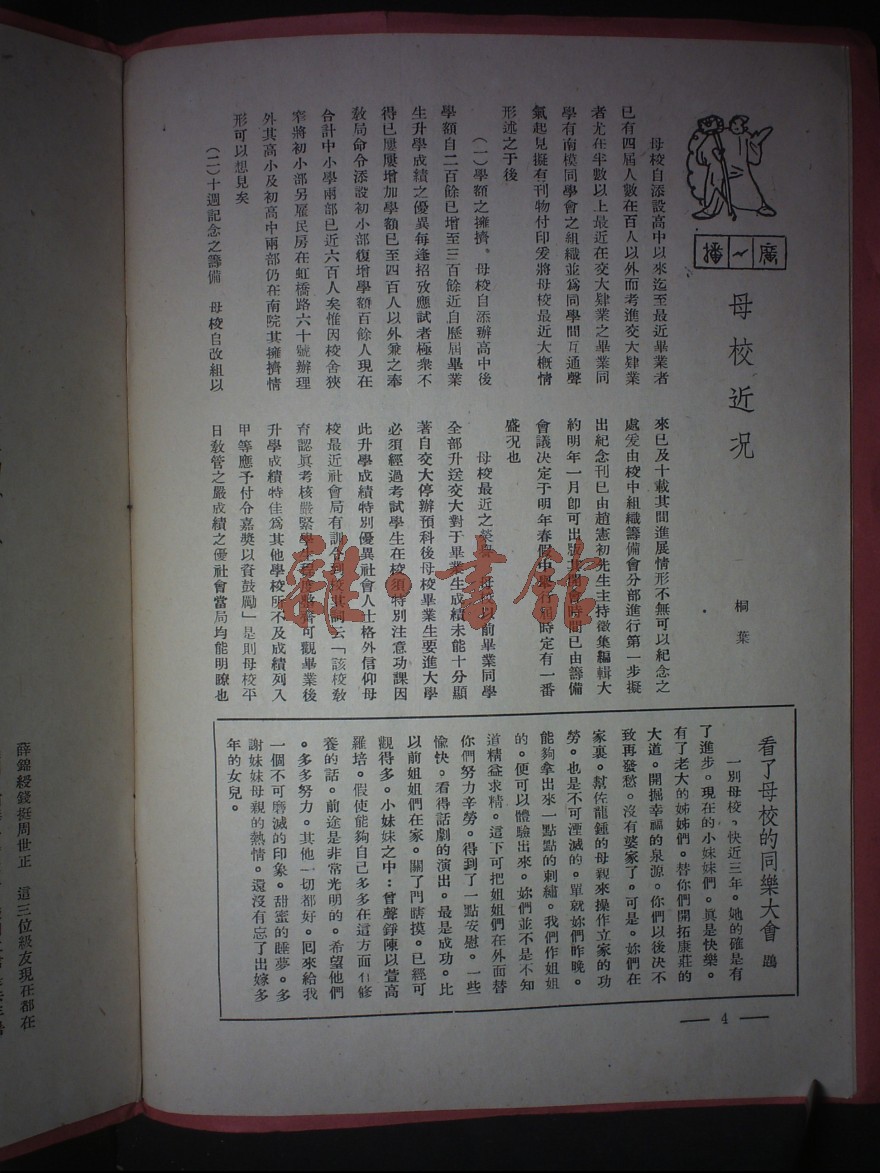 廣～播
母校近况
桐葉
母校自添設高中以來迄至最近畢業者
已有四屆人數在百人以外而考進交大肄業
者尤在半數以上最近在交大肄業之畢業同
學有南模同學會之組織並爲同學間互通聲
氣起見擬有刊物付印爰將母校最近大概情
形述之于後
（一）學額之擁擠。母校自添辦高中後
學額自二百餘已增至三百餘近自歷屆畢業
生升學成績之優異每逢招攷應試者極衆不
得已屢屢增加學額已至四百人以外兼之奉
敎局命令添設初小部復增學額百餘人現在
合計中小學兩部已近六百人矣惟因校舍狹
窄將初小部另雇民房在虹橋路六十號辦理
外其高小及初高中兩部仍在南院其擁擠情
形可以想見矣
（二）十週記念之籌備　母校自改組以
來已及十載其間進展情形不無可以紀念之
處爰由校中組織籌備會分部進行第一步擬
出紀念刊已由趙憲初先生主持徵集編輯大
約明年一月卽可出版其開會時間已由籌備
會議決定于明年春假中舉行屆時定有一番
盛况也
母校最近之榮譽　母校以前畢業同學
全部升送交大對于畢業生成績未能十分顯
著自交大停辦預科後母校畢業生要進大學
必須經過考試學生在校須特別注意功課因
此升學成績特別優異社會人士格外信仰母
校最近社會局有訓令到校其詞云「該校敎
育認眞考核嚴緊學生程度整齊可觀畢業後
升學成績特佳爲其他學校所不及成績列入
甲等應予付令嘉獎以資鼓勵」是則母校平
日敎管之嚴成績之優社會當局均能明瞭也
看了母校的同樂大會　鵑
一別母校，快近三年。她的確是有
了進步。現在的小妹妹們。眞是快樂。
有了老大的姊姊們。替你們開拓康莊的
大道。開掘幸福的泉源。你們以後決不
致再發愁。沒有婆家了。可是。妳們在
家裏。幫佐龍鍾的母親來操作立家的功
勞。也是不可湮滅的。單就妳們昨晚。
能夠拿出來一點點的刺繡。我們作姐姐
的。便可以體驗出來。妳們並不是不知
道精益求精。這下可把姐姐們在外面替
你們努力辛勞。得到了一點安慰。一些
愉快。看得話劇的演出。最是成功。比
以前姐姐們在家。關了門瞎摸。已經可
觀得多。小妹妹之中：曾聲錚陳以萱高
羅培。假使能夠自己多多在這方面有修
養的話。前途是非常光明的。希望他們
。多多努力。其他一切都好。囘來給我
一個不可磨滅的印象。甜蜜的睡夢。多
謝妹妹母親的熱情。還沒有忘了出嫁多
年的女兒。
— 4 —
薛錦綬錢挺周世正　這三位級友現在都在
雜·書館